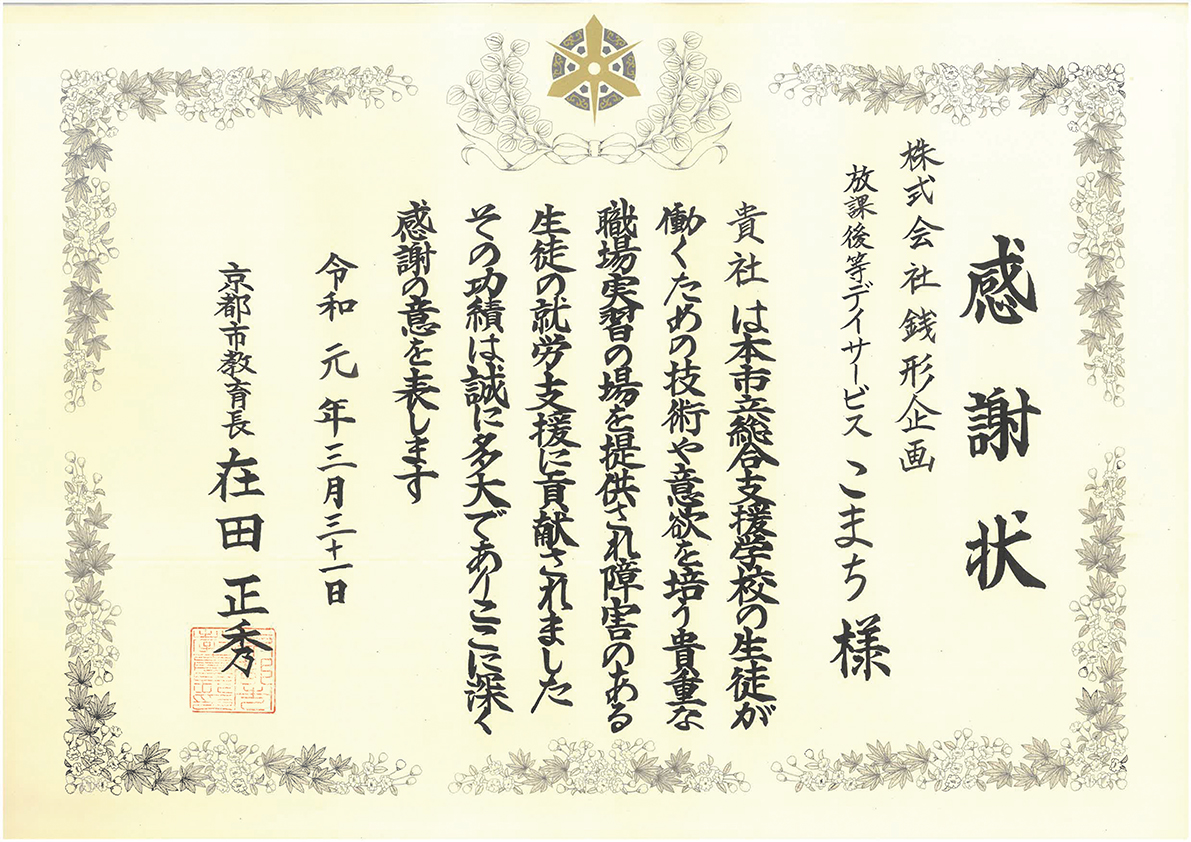 感謝状
株式会社銭形企画
放課後等デイサービス こまち 様
貴社は本市立総合支援学校の生徒が
働くための技術や意欲を培う貴重な
職場実習の場を提供され障害のある
生徒の就労支援に貢献されました
その功績は誠に多大でありここに深く
感謝の意を表します
令和元年三月三十一日
京都市教育長 在田正秀